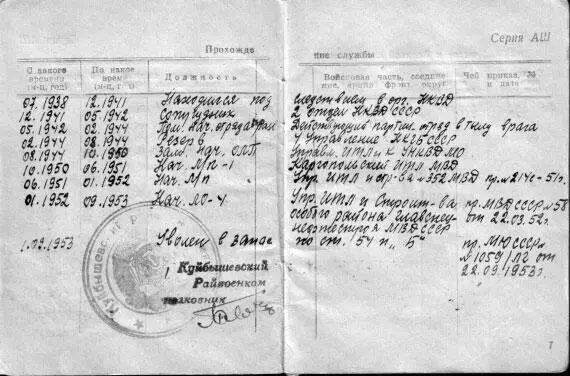 Серия АШ
Прохожде
ние службы
С какого времени (м-ц, год)
По какое время (м-ц, г)
Должность
Войсковая часть, соедине-
ние, армия фронт, округ
Чей приказ, №
и дата
07.1938 12.1941 Находился под следствием в ор. НКВД
12.1941 05.1942 Сотрудник 2 отдел НКВД СССР
05.1942 02.1944 Действующий партиз. отряд в тылу врага
02.1944 08.1944 Резерв 4 Управление НКГБ СССР
08.1944 10.1950 Зам. нач. ОЛП Управл. ИТЛ и К УНКВД МО
10.1950 06.1951 Нач. МП-1 Каргопольский ИТЛ МВД
06.1951 01.1952 Нач. МП Упр. ИТЛ и стр-ва №352 МВД пр. №214с-51г.
01.1952 09.1953 Нач. ЛО-4 Упр. ИТЛ и Строит-ва пр. МВД СССР №58
особого района Главспец- от 22.03.52г.
нефтестроя МВД СССР
1.09.1953 Уволен в запас по ст. 54 п. "Б" пр. МЮ СССР
№1059/ЛГ от
22.09.1953г.
Куйбышевский
Райвоенком
полковник
7